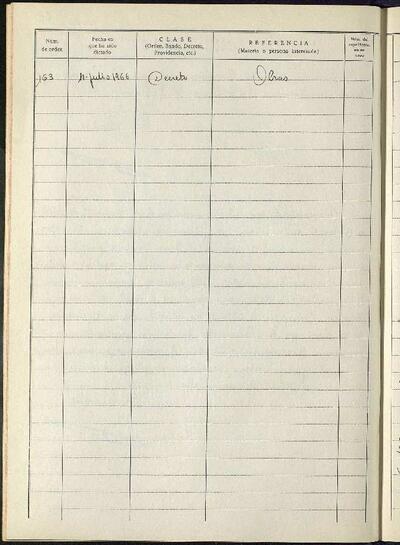 Núm. de orden
Fecha en que ha sido dictado
CLASE
(Orden, Bando, Decreto, Providencia, etc.)
REFERENCIA
(Materia o persona interesada)
Núm. de
163 julio 1966 Decreto Obras